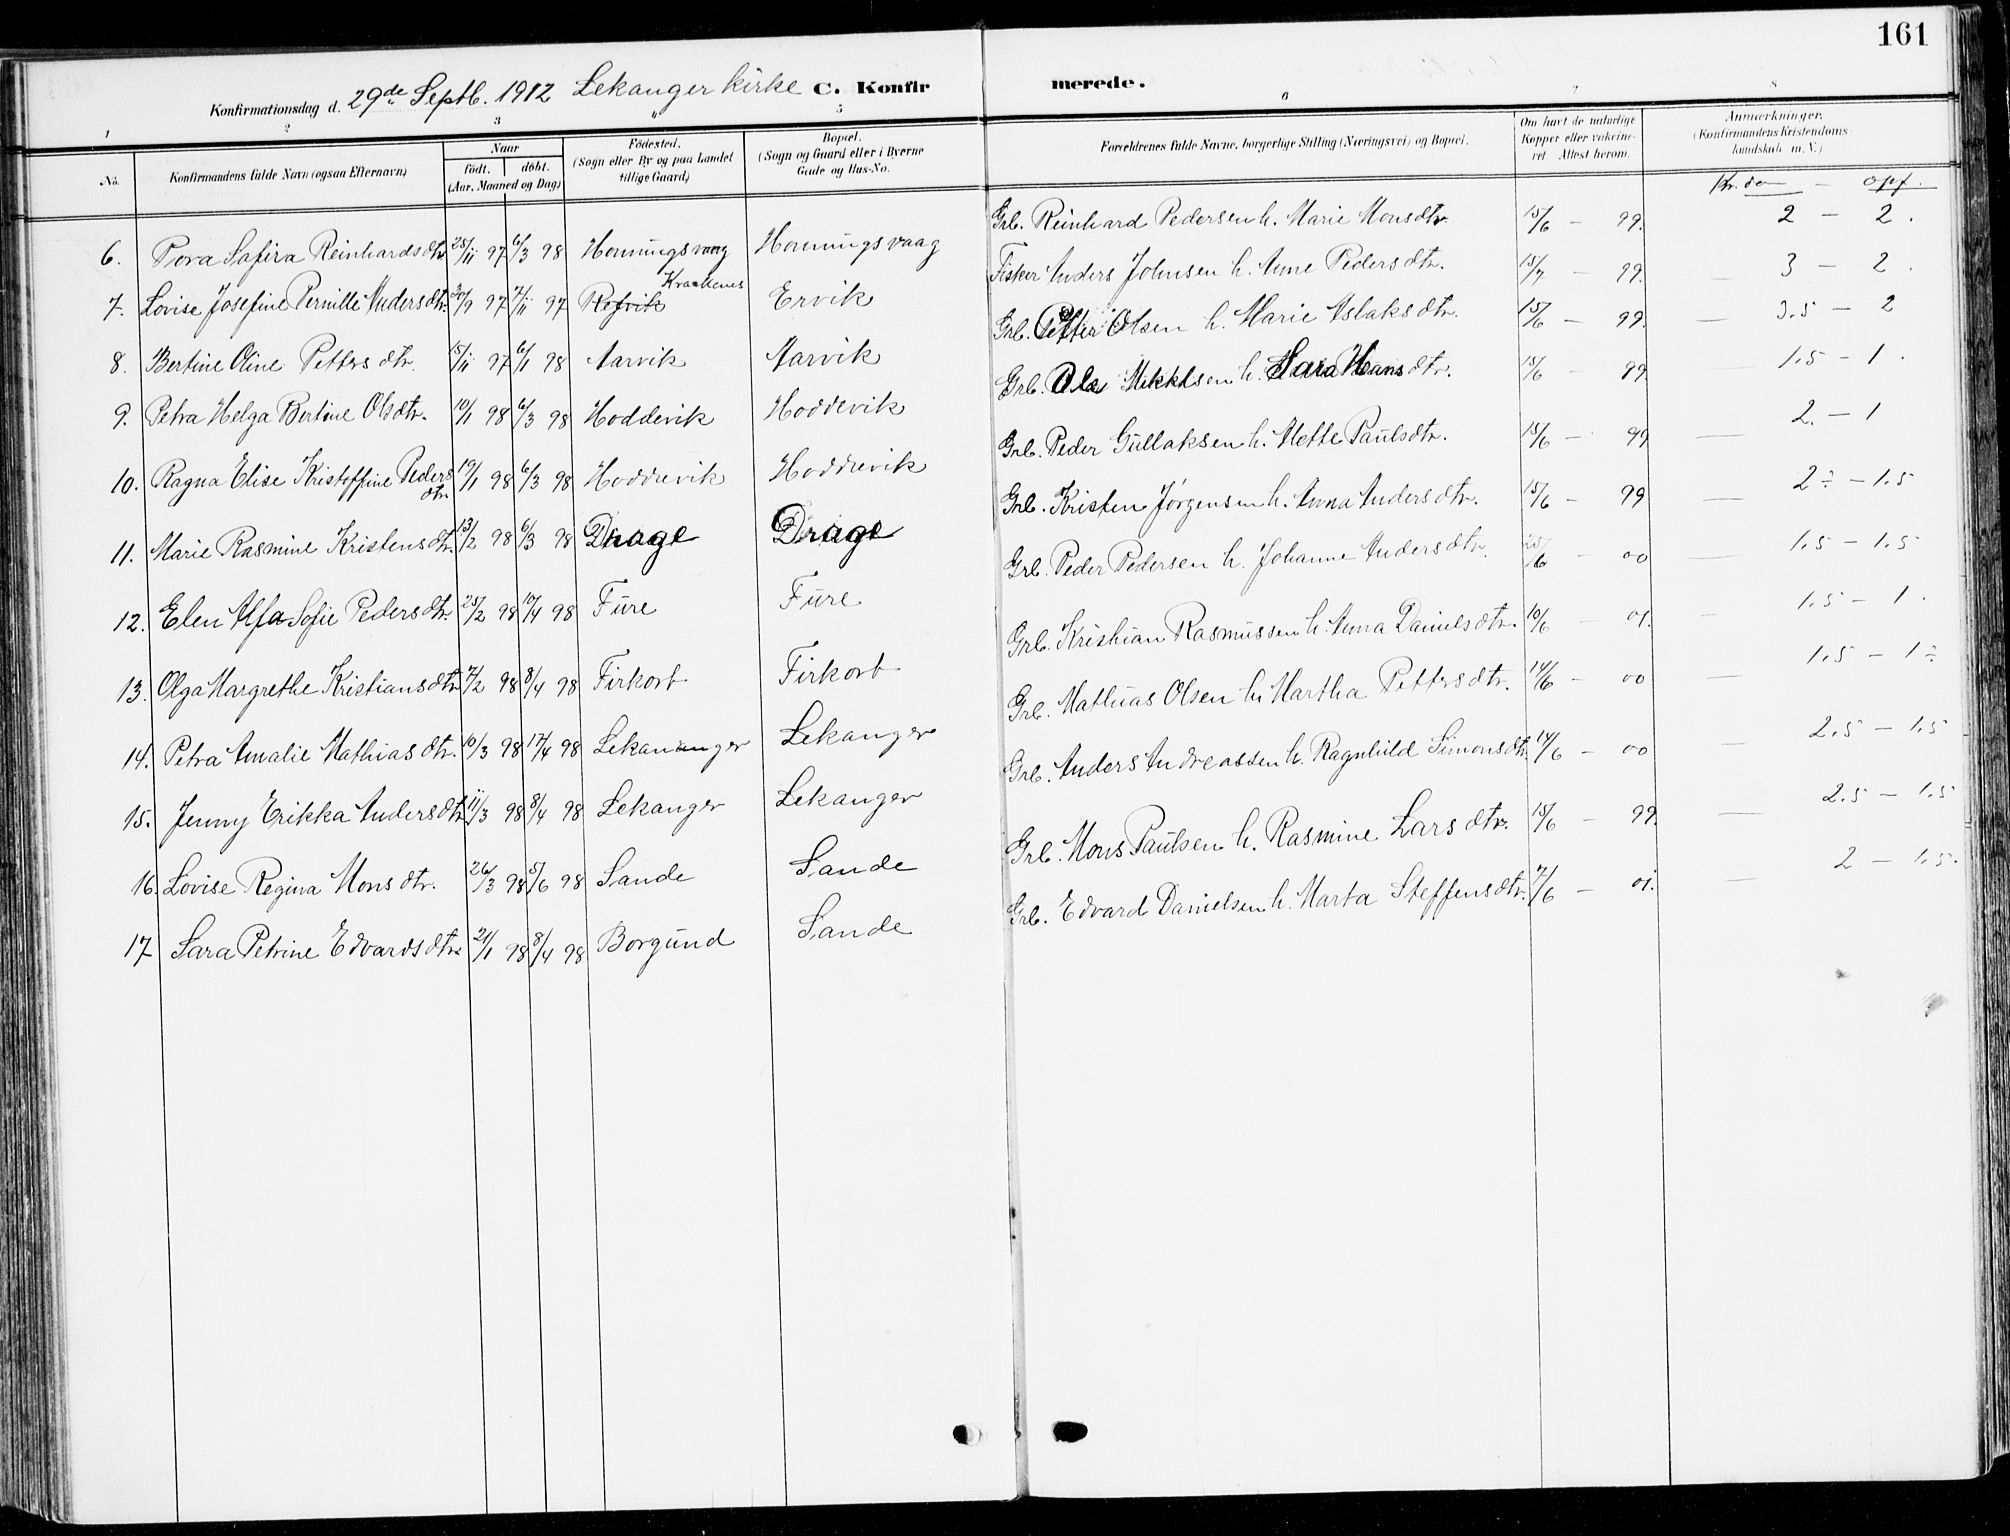 161
Konfirmationsdag d. 29de Septb. 1912 Lekanger kirke C. Konfirmerede.
1 2 3 4 5 6 7 8
No. Konfirmandens fulde Navn (ogsaa Efternavn) Naar födt. döbt. (Aar, Maaned og Dag) Födested. (Sogn eller By og paa Landet tillige Gaard) Bopæl. (Sogn og Gaard eller i Byerne Gade og Hus-No. Forældrenes fulde Navne, borgerlige Stilling (Næringsvei) og Bopæl. Om havt de naturlige Kopper eller vakcineret. Attest herom. Anmærkninger. (Konfirmandens Kristendomskundskab m. V.)
Kr.dom — opf.
6. Tora Safira Reinhardsdtr. 25/11 97 6/3 98 Honningsvaag Honningsvaag Grb. Reinhard Pedersen h. Marie Monsdtr. 15/6 — 99. 2 — 2.
7. Lovise Josefine Pernille Andersdtr. 30/9 97 7/11 97 Refvik Kraakenes Ervik Fisker Anders Johnsen h. Anne Pedersdtr. 15/7 — 99. — 3 — 2.
8. Bertine Oline Pettersdtr. 15/11 97 6/1 98 Aarvik Aarvik Grb. Petter Olsen h. Marie Aslaksdtr. 15/6 — 99. — 3.5 — 2
9. Petra Helga Bertine Olsdtr. 10/1 98 6/3 98 Hoddevik Hoddevik Grb. Ole Mikkelsen h. Sara Hansdtr. 15/6 — 99. — 1.5 - 1.
10. Ragna Elise Kristoffine Pedersdtr. 19/1 98 6/3 98 Hoddevik Hoddevik Grb. Peder Gullaksen h. Mette Paulsdtr. 15/6 — 99 — 2. — 1
11. Marie Rasmine Kristensdtr. 13/2 98 6/3 98 Drage Drage Grb. Kristen Jørgensen h. Anna Andersdtr. 15/6 — 99 — 2÷ — 1.5
12. Elen Alfa Sofie Pedersdtr. 25/2 98 17/4 98 Fure Fure Grb. Peder Pedersen h. Johanne Andersdtr. 25/6 — 00 — 1.5 — 1.5
13. Olga Margrethe Kristiansdtr. 7/2 98 8/4 98 Tirkort Tirkort Grb. Kristian Rasmussen h. Anna Danielsdtr. 10/6 — 01. — 1.5 — 1.
14. Petra Amalie Mathiasdtr. 10/3 98 17/4 98 Lekananger Lekanger Grb. Mathias Olsen h. Martha Pettersdtr. 14/6 — 00 — 1.5 — 1÷
15. Jenny Erikka Andersdtr. 11/3 98 8/4 98 Lekanger Lekanger Grb. Anders Andreassen h. Ragnhild Simonsdtr. 14/6 — 00 — 2.5 — 1.5
16. Lovise Regina Monsdtr. 26/3 98 5/6 98 Sande Sande Grb. Mons Paulsen h. Rasmine Larsdtr. 15/6 — 99. — 2.5 — 1.5
17 Sara Petrine Edvardsdtr. 21/1 98 8/4 98 Borgund Sande Grb. Edvard Danielsen h. Marta Steffensdtr. 7/6 — 01. — 2 — 1.5.